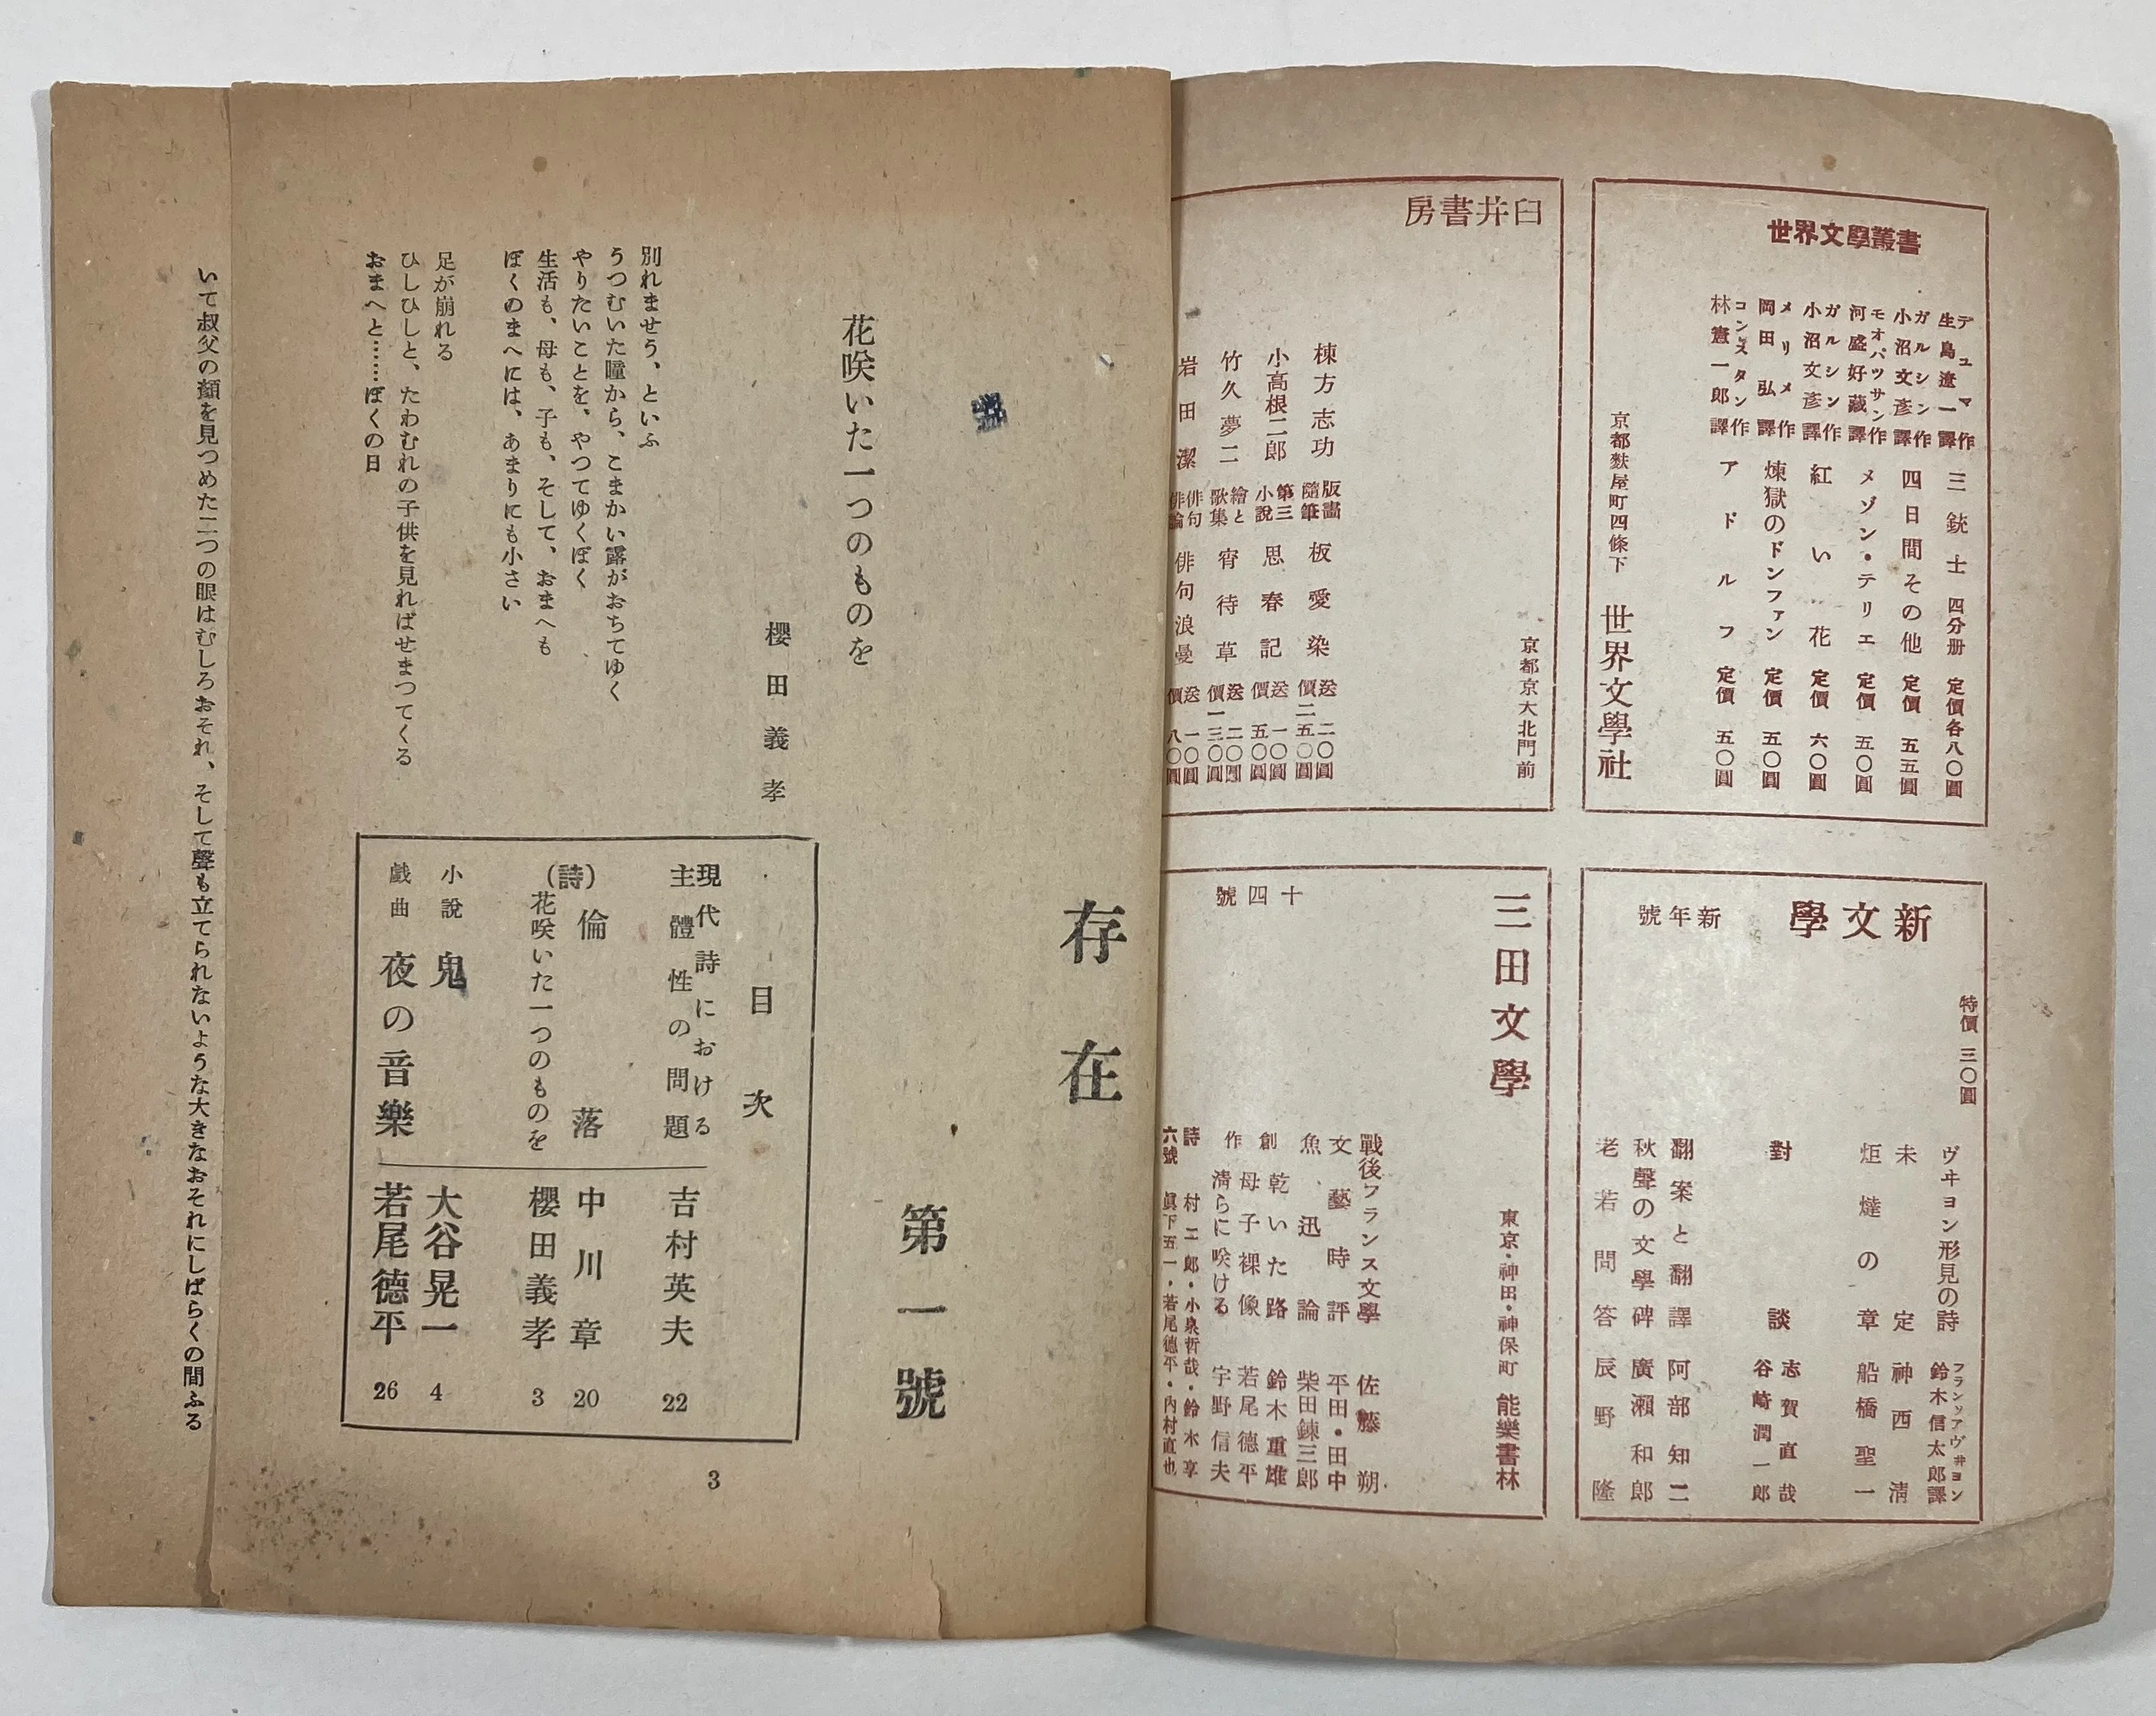 世界文學叢書
デュマ作
生島遼一譯
三銃士 四分册 定價各八〇圓
ガルシン作
小沼文彥譯
四日間その他 定價 五五圓
モオパッサン作
河盛好藏譯
メゾン・テリエ 定價 五〇圓
ガルシン作
小沼文彥譯
紅い花 定價 六〇圓
メリメ作
岡田弘譯
煉獄のドンファン 定價 五〇圓
コンスタン作
林憲一郎譯
アドルフ 定價 五〇圓
京都麩屋町四條下 世界文學社
臼井書房
京都京大北門前
棟方志功 版畫隨筆 板愛染 送二〇圓 價二五〇圓
小高根二郎 第三小說 思春記 送一〇圓 價五〇圓
竹久夢二 繪と歌集 宵待草 送二〇圓 價一三〇圓
岩田潔 俳句俳論 俳句浪曼 送一〇圓 價八〇圓
新文學
新年號
特價 三〇圓
ヴヰヨン形見の詩 フランソアヴヰヨン 鈴木信太郎譯
未定 神西淸
炬燵の章 船橋聖一
對談 志賀直哉 谷崎潤一郎
翻案と翻譯 阿部知二
秋聲の文學碑 廣瀨和郎
老若問答 辰野隆
三田文學
十四號
東京・神田・神保町 能樂書林
戰後フランス文學 佐藤朔
文藝時評 平田・田中
魚迅論 柴田鍊三郎
創作
乾いた路 鈴木重雄
母子裸像 若尾德平
淸らに咲ける 宇野信夫
詩 村二郎・小泉哲哉・鈴木享
六號 眞下五一・若尾德平・內村直也
存在
第一號
號
花咲いた一つのものを
櫻田義孝
別れませう、といふ
うつむいた瞳から、こまかい露がおちてゆく
やりたいことを、やつてゆくぼく
生活も、母も、子も、そして、おまへも
ぼくのまへには、あまりにも小さい
足が崩れる
ひしひしと、たわむれの子供を見ればせまつてくる
おまへと……ぼくの日
目次
現代詩における
主體性の問題 吉村英夫 22
(詩)
倫落 中川章 20
花咲いた一つのものを 櫻田義孝 3
小說 鬼 大谷晃一 4
戲曲 夜の音樂 若尾德平 26
3
いて叔父の顏を見つめた二つの眼はむしろおそれ、そして聲も立てられないような大きなおそれにしばらくの間ふる